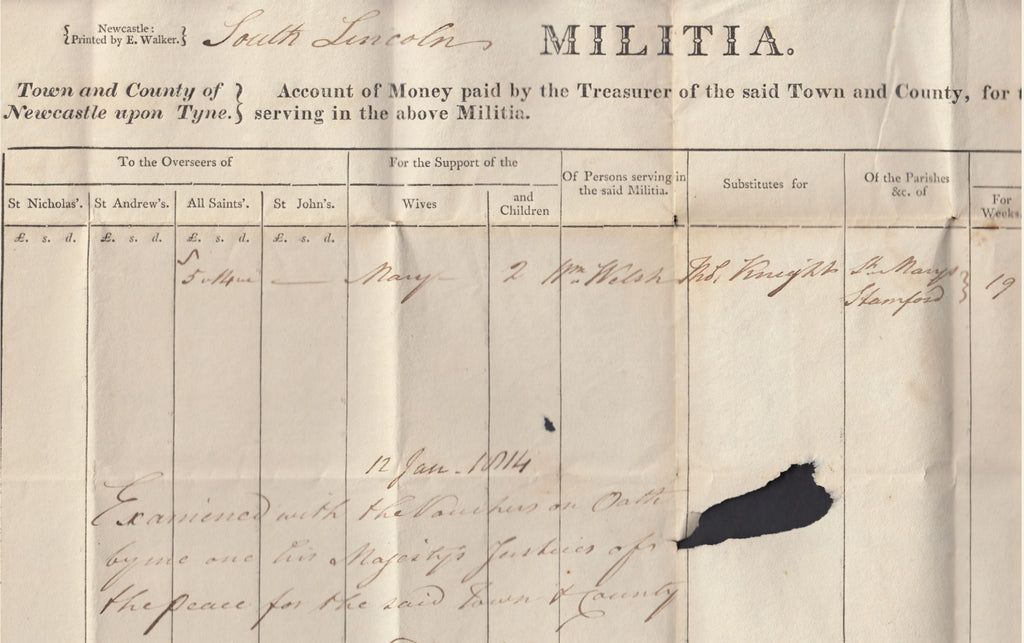 Newcastle:
Printed by E. Walker.
South Lincoln MILITIA.
Town and County of
Newcastle upon Tyne.
Account of Money paid by the Treasurer of the said Town and County, for
serving in the above Militia.
To the Overseers of
For the Support of the
Of Persons serving in
the said Militia.
Substitutes for
Of the Parishes
&c. of
For
Weeks
St Nicholas'. St Andrew's. All Saints'. St John's. Wives and
Children
£. s. d. £. s. d. £. s. d. £. s. d.
5 " 14 " — Mary 2 Wm. Welsh Thos. Knight St. Marys
Stamford 19
12 Jan. 1814
Examined with the Vouchers on Oath
by me one his Majesty's Justices of
the peace for the said Town & County